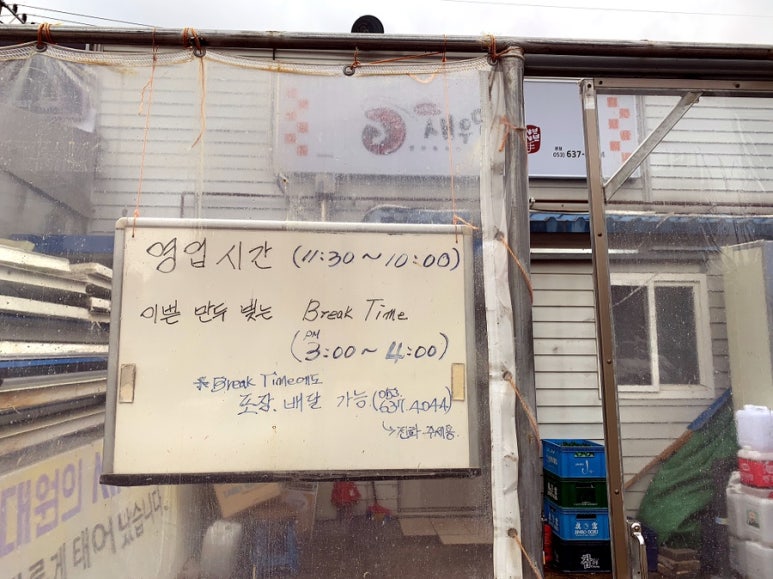 영업시간 (11:30~10:00)
이쁜 만두 빚는 Break Time
(PM 3:00~4:00)
※Break Time에도
포장.배달 가능(053. 637.4044)
↳전화주세용
대원의
태어 났습니다.